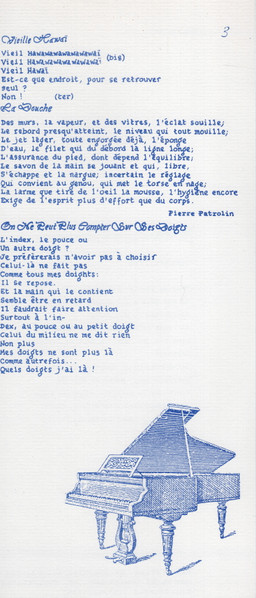 3
Vieille Hawaï
Vieil Hawawawawawawawaï
Vieil Hawawawawawawawaï (bis)
Vieil Hawaï
Est-ce que endroit, pour se retrouver
seul ?
Non ! (ter)
La Douche
Des murs, la vapeur, et des vitres, l'éclat souille;
Le rebord presqu'atteint, le niveau qui tout mouille;
Le jet léger, toute engorgée déjà, l'éponge
D'eau, le filet qui du débord la ligne longe;
L'assurance du pied, dont dépend l'équilibre;
Le savon de la main se jouant et qui, libre,
S'échappe et la nargue; incertain le réglage
Qui convient au genou, qui met le torse en nage;
La larme que tire de l'oeil la mousse, l'hygiène encore
Exige de l'esprit plus d'effort que du corps.
Pierre Patrolin
On Ne Peut Plus Compter Sur Ses Doigts
L'index, le pouce ou
Un autre doigt ?
Je préfèrerais n'avoir pas à choisir
Celui-là ne fait pas
Comme tous mes doights:
Il se repose.
Et la main qui le contient
Semble être en retard
Il faudrait faire attention
Surtout à l'in-
Dex, au pouce ou au petit doigt
Celui du milieu ne me dit rien
Non plus
Mes doigts ne sont plus là
Comme autrefois...
Quels doigts j'ai là !